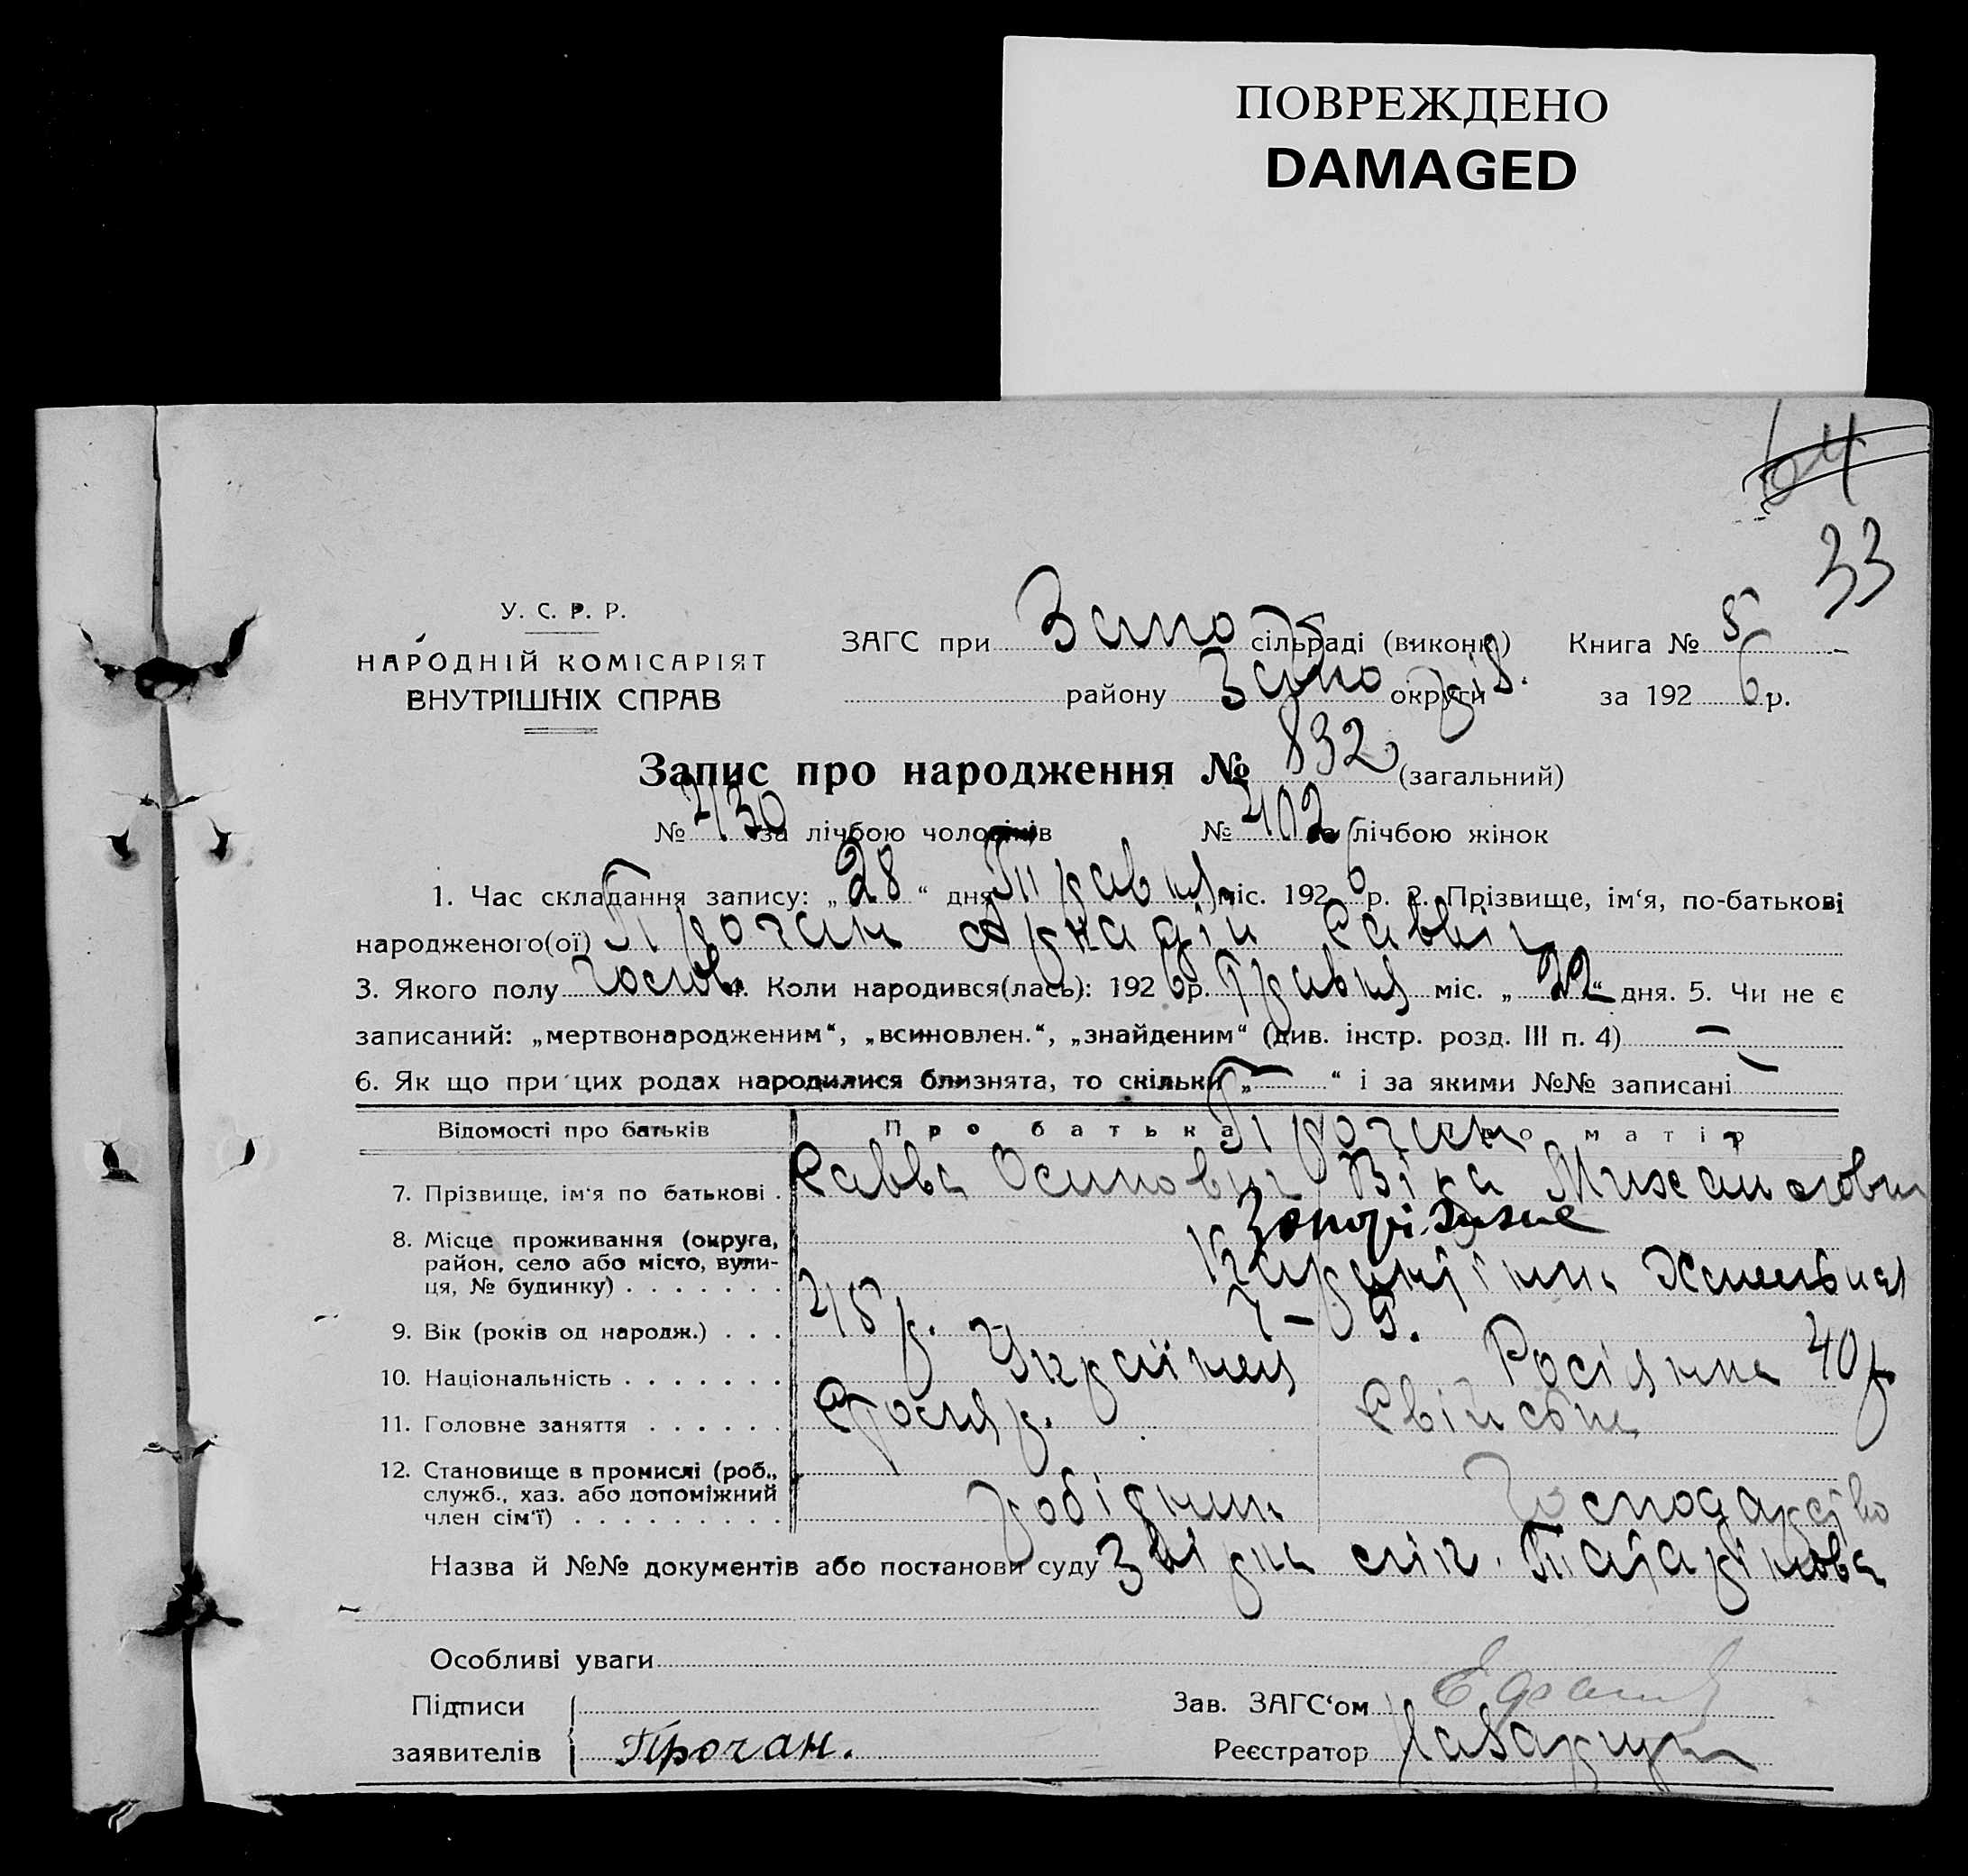 ПОВРЕЖДЕНО
DAMAGED
64
33
У. С. Р. Р.
НАРОДНІЙ КОМІСАРІЯТ
ВНУТРІШНІХ СПРАВ
ЗАГС при Запо сільраді (виконк) Книга № 5
району Запо округи за 1926 р.
Запис про народження № 832 (загальний)
№ 430 за лічбою чоловіків № 402 за лічбою жінок
1. Час складання запису: „28“ дня Травня міс. 1926 р. 2. Прізвище, ім‘я, по-батькові
народженого(ої) Прочан Аркадій Саввіч
3. Якого полу 4. Коли народився(лась): 1926 р. Травня міс. „22“ дня. 5. Чи не є
записаний: „мертвонародженим“, „всиновлен.“, „знайденим“ (див. інстр. розд. III п. 4) —
6. Як що при цих родах народилися близнята, то скільки „—“ і за якими №№ записані —
Відомості про батьків Про батька Про матір
Прочан
7. Прізвище, ім‘я по батькові . Савва Осипович Віра Михайловна
8. Місце проживання (округа, район, село або місто, вули-ця, № будинку) . . . . . . . Запоріжжя
9. Вік (років од народж.) . . . 45 р. 40 р
10. Національність . . . . . . . Українец Росіянка
11. Головне заняття . . . . . . Столяр. Свійське
12. Становище в промислі (роб., служб., хаз. або допоміжний член сім‘ї) . . . . . . . . . робітник Господарство
Назва й №№ документів або постанови суду
Особливі уваги
Підписи Зав. ЗАГС‘ом
заявителів Прочан. Реєстратор